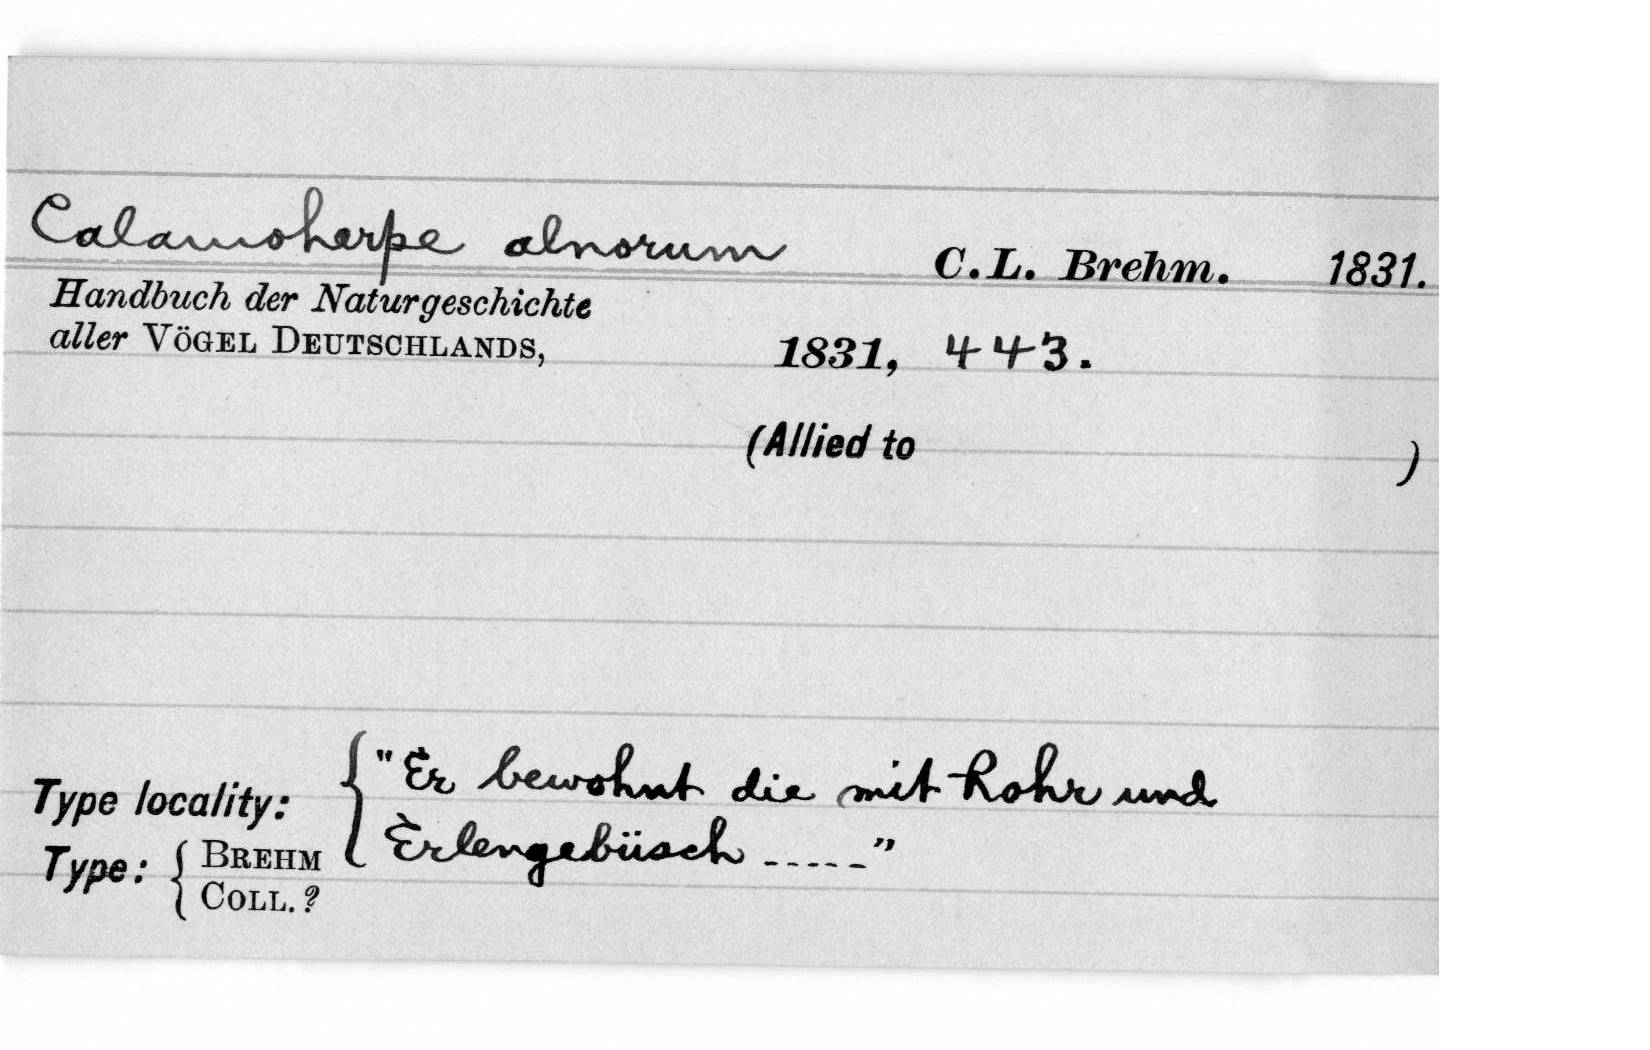 Calamoherpe alnorum C.L. Brehm. 1831.
Handbuch der Naturgeschichte
aller VÖGEL DEUTSCHLANDS, 1831, 443.
(Allied to )
Type locality: { "Er bewohnt die mit Rohr und
Erlengebüsch -----"
Type: { BREHM
COLL. ?